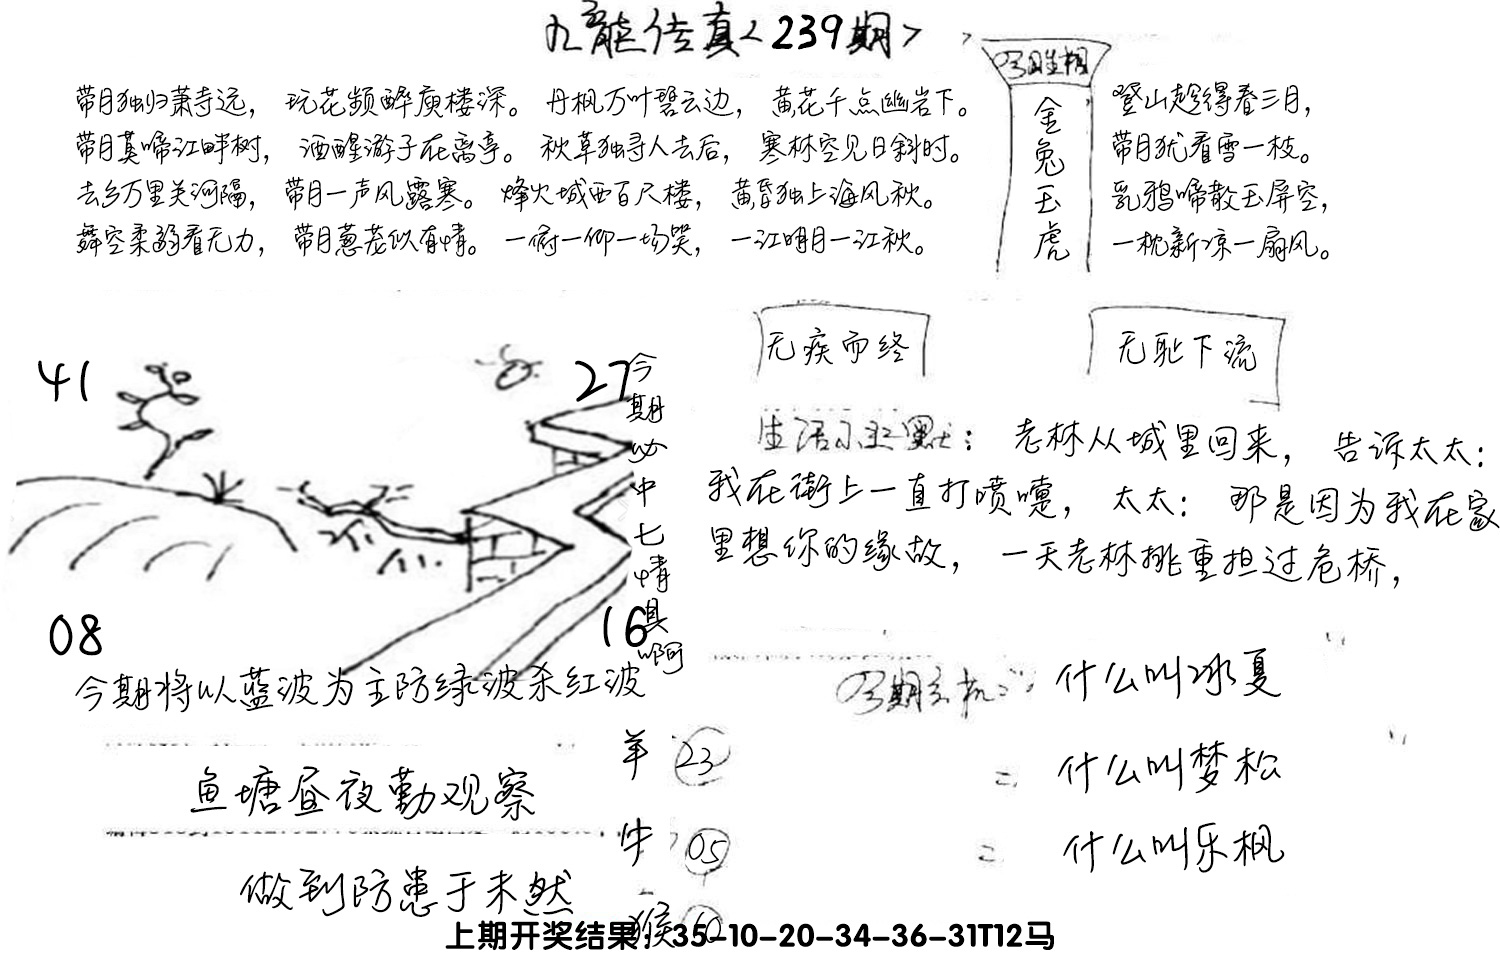 九龙传真<239期>
带月独归萧寺远， 玩花频醉庾楼深。 丹枫万叶碧云边， 黄花千点幽岩下。
带月莫啼江畔树， 酒醒游子在离亭。 秋草独寻人去后， 寒林空见日斜时。
去乡万里关河隔， 带月一声风露寒。 烽火城西百尺楼， 黄昏独上海风秋。
舞空柔弱看无力， 带月葱茏似有情。 一俯一仰一场笑， 一江明月一江秋。
今期生相
金兔玉虎
登山趁得春三月，
带月犹看雪一枝。
乳鸦啼散玉屏空，
一枕新凉一扇风。
41
27
08
16
今期必中七情具啊
今期将以蓝波为主防绿波杀红波
鱼塘昼夜勤观察
做到防患于未然
羊 23
牛 05
猴
无疾而终
无耻下流
生活小幽默： 老林从城里回来， 告诉太太：
我在街上一直打喷嚏， 太太： 那是因为我在家
里想你的缘故， 一天老林挑重担过危桥，
今期玄机： 什么叫冰夏
= 什么叫梦松
= 什么叫乐枫
上期开奖结果：35-10-20-34-36-31T12马